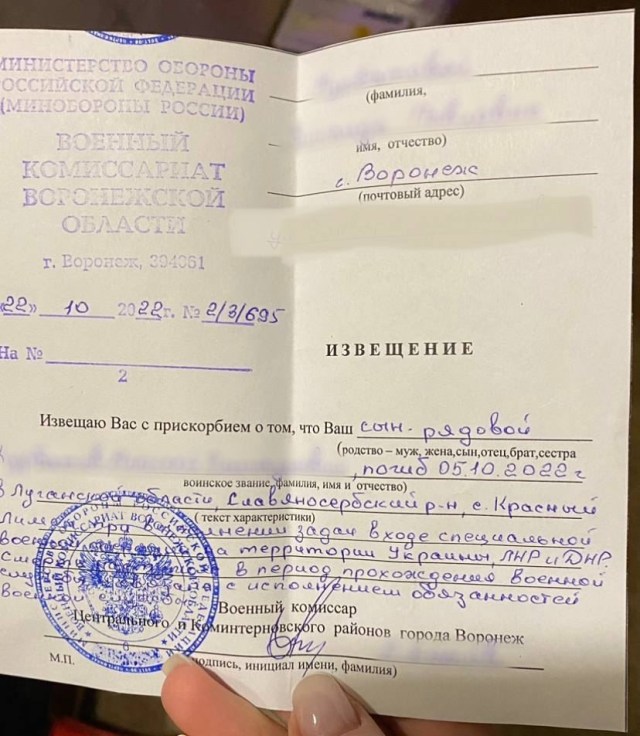 МИНИСТЕРСТВО ОБОРОНЫ
РОССИЙСКОЙ ФЕДЕРАЦИИ
(МИНОБОРОНЫ РОССИИ)
ВОЕННЫЙ
КОМИССАРИАТ
ВОРОНЕЖСКОЙ
ОБЛАСТИ
г. Воронеж, 394061
«22» 10 2022г. № 2/3/695
На №
2
(фамилия,
имя, отчество)
г. Воронеж
(почтовый адрес)
ИЗВЕЩЕНИЕ
Извещаю Вас с прискорбием о том, что Ваш сын - рядовой
(родство – муж, жена,сын,отец,брат,сестра
, погиб 05.10.2022 г
воинское звание, фамилия, имя и отчество)
в Луганской области, Славяносербский р-н, с. Красный
( текст характеристики)
Лиман при выполнении задач в ходе специальной
военной на территории Украины, ЛНР и ДНР.
в период прохождения военной
с исполнением обязанностей
Военный комиссар
Центрального и Коминтерновского районов города Воронеж
М.П.
подпись, инициал имени, фамилия)